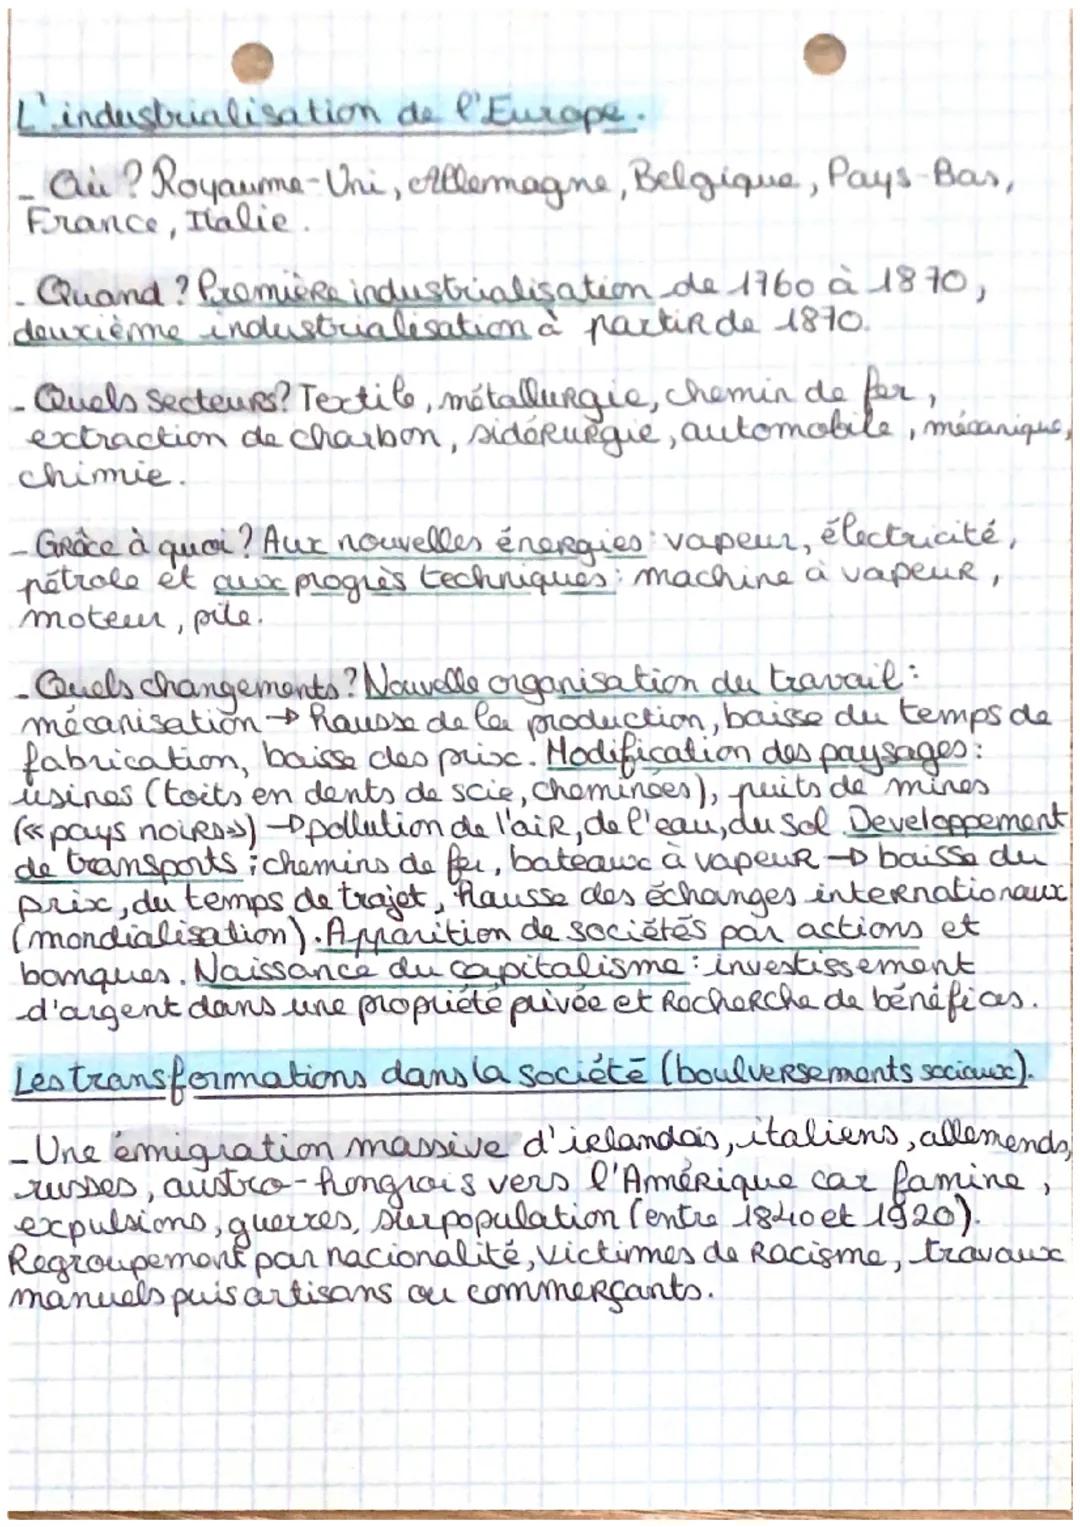 L'industrialisation de l'Europe.
- Où ? Royaume-Uni, Allemagne, Belgique, Pays-Bas,
France, Italie.
- Quand ? Première industrialisation de 1760 à 1870,
deuxième industrialisation à partir de 1870.
- Quels secteurs ? Textile, métallurgie, chemin de fer,
extraction de charbon, sidérurgie, automobile, mécanique,
chimie.
- Grâce à quoi ? Aux nouvelles énergies : vapeur, électricité,
pétrole et aux progrès techniques : machine à vapeur,
moteur, pile.
- Quels changements ? Nouvelle organisation du travail :
mécanisation → hausse de la production, baisse du temps de
fabrication, baisse des prix. Modification des paysages :
usines (toits en dents de scie, cheminées), puits de mines
(« pays noirs ») → pollution de l'air, de l'eau, du sol. Developpement
de transports : chemins de fer, bateaux à vapeur → baisse du
prix, du temps de trajet, hausse des échanges internationaux
(mondialisation). Apparition de sociétés par actions et
banques. Naissance du capitalisme : investissement
d'argent dans une propriété privée et recherche de bénéfices.
Les transformations dans la société (boulversements sociaux).
- Une émigration massive d'irlandais, italiens, allemends,
russes, austro-hongrois vers l'Amérique car famine,
expulsions, guerres, surpopulation (entre 1840 et 1920).
Regroupement par nacionalité, victimes de racisme, travaux
manuels puis artisans ou commerçants.